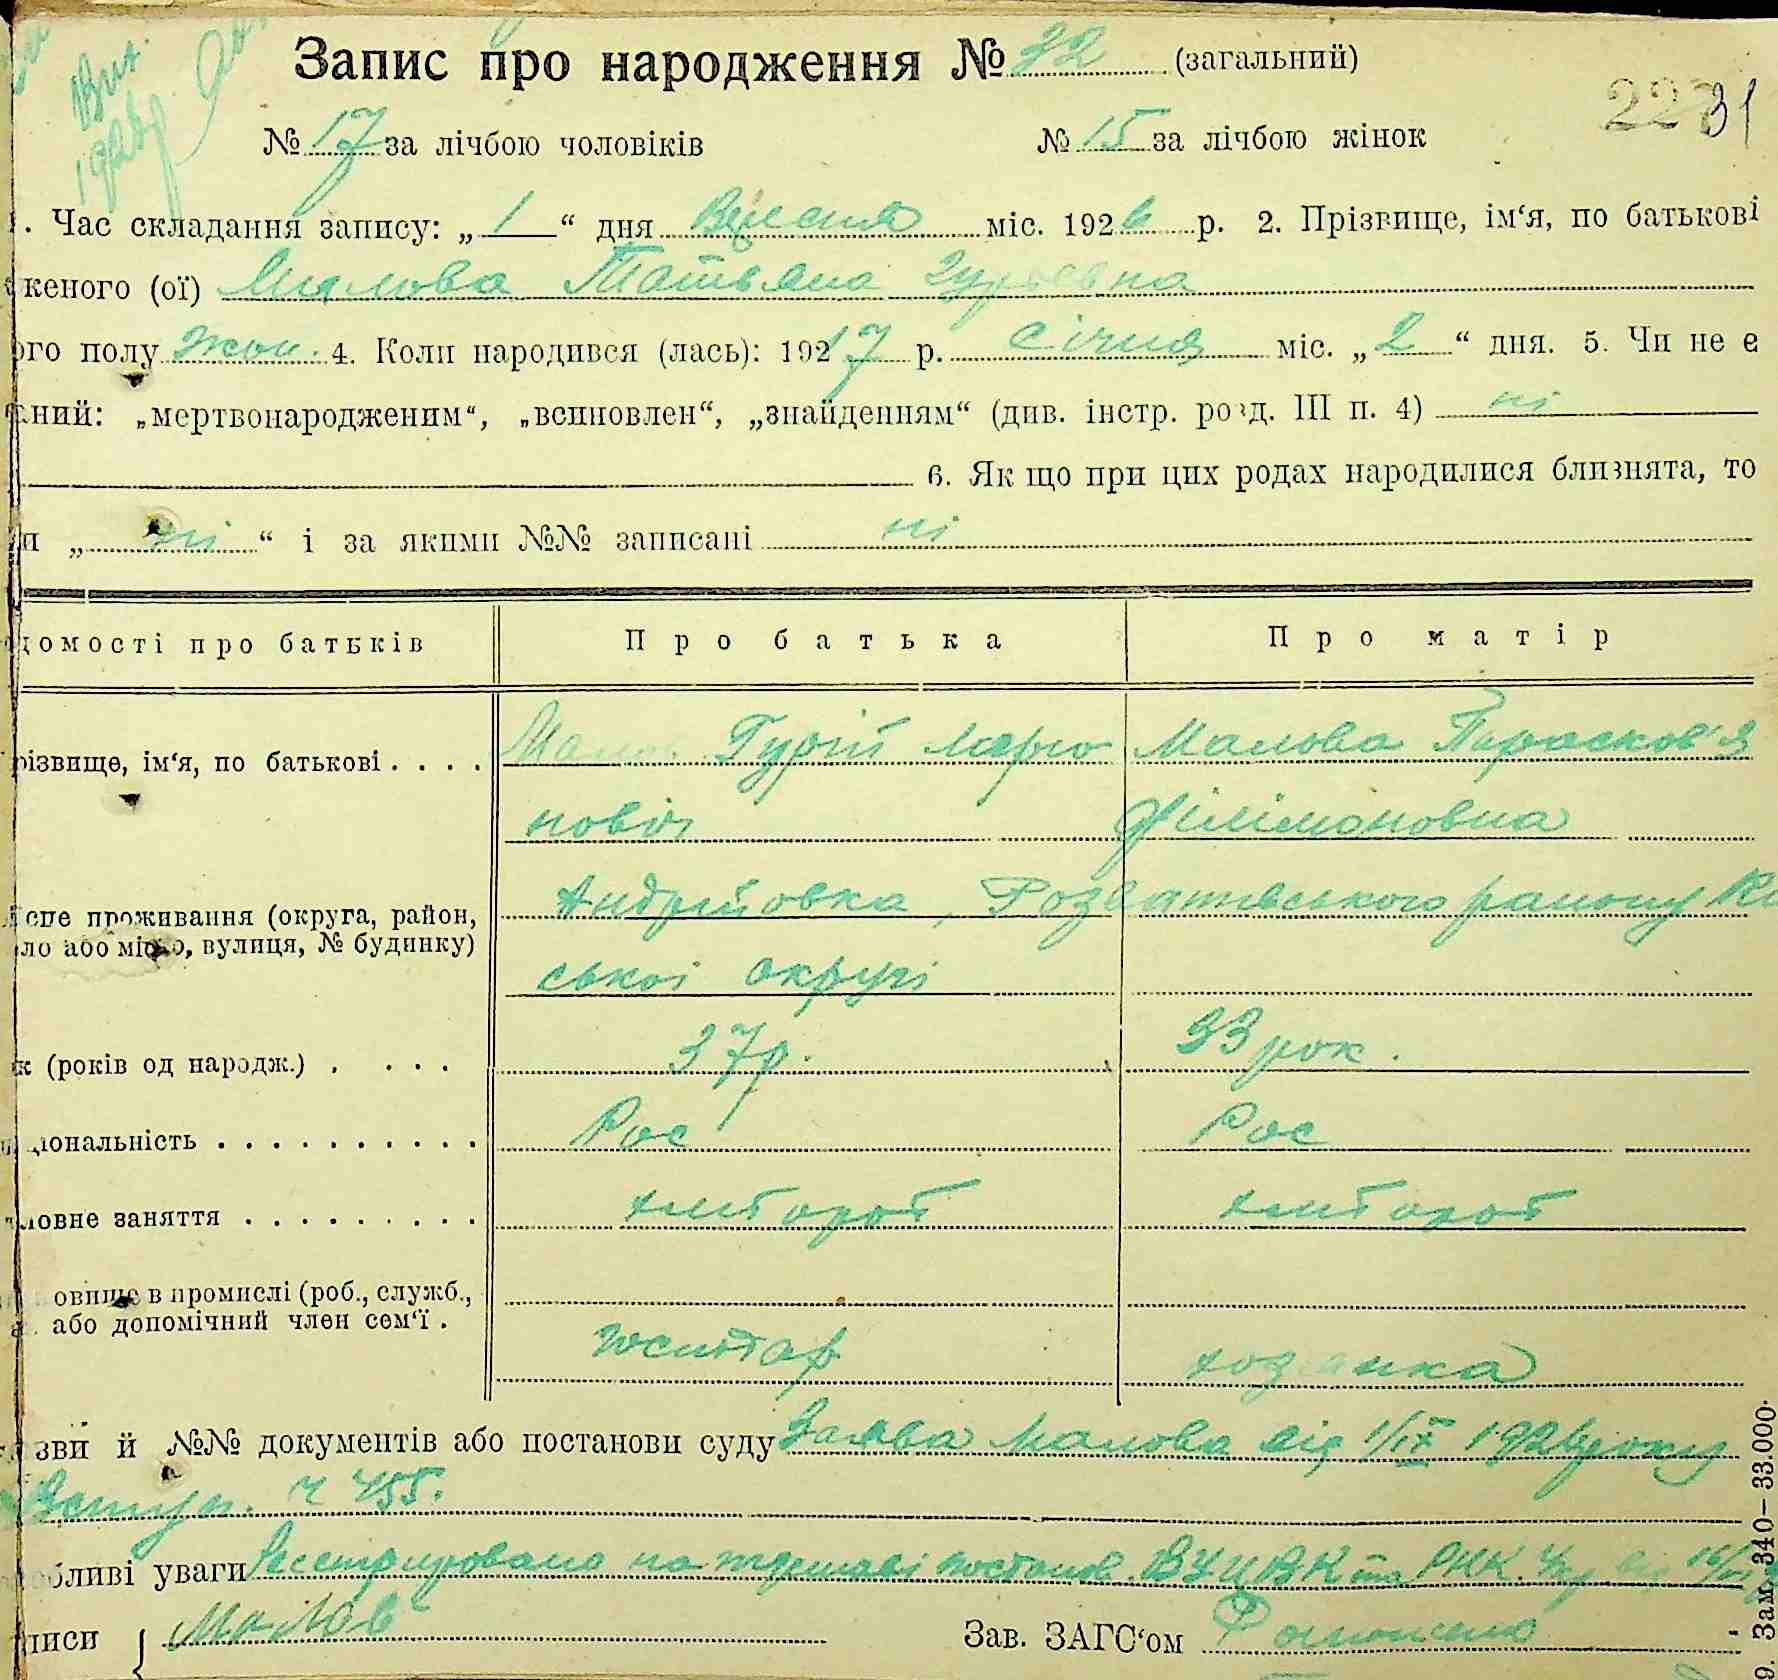 Вип.
Запис про народження № 32 (загальний)
31
№ 17 за лічбою чоловіків № 15 за лічбою жінок
. Час складання запису: „ 1 “ дня Вересня міс. 1926 р. 2. Прізвище, ім‘я, по батькові
женого (ої) Малова Татьяна Гурьевна
ого полу жон. 4. Коли народився (лась): 1917 р. Січня міс. „ 2 “ дня. 5. Чи не є
ний: „мертвонародженим“, „всиновлен“, „знайденням“ (див. інстр. розд. III п. 4) ні
6. Як що при цих родах народилися близнята, то
и „ ні “ і за якими №№ записані ні
домості про батьків Про батька Про матір
різвище, ім‘я, по батькові . . . . Малов Гурій Марко Малова Парасков'я
нович Філімоновна
спе проживання (округа, район, Андрійовка, Розважівського району Ки
ло або місто, вулиця, № будинку)
ської округі
к (років од народж.) . . . . 37р. 33 рок.
ціональність . . . . . . . . . . Рос Рос
ловне заняття . . . . . . . . . хлібороб хлібороб
овище в промислі (роб., служб.,
або допомічний член сем‘ї .
господар хозяйка
зви й №№ документів або постанови суду Заява Малова від 1/IX 1926 року
Вступн. ч 455.
бливі уваги Реєстрировано на підставі постанов. ВУЦВК та РНК. від
писи { Малов Зав. ЗАГС‘ом
Зам. 340–33.000.